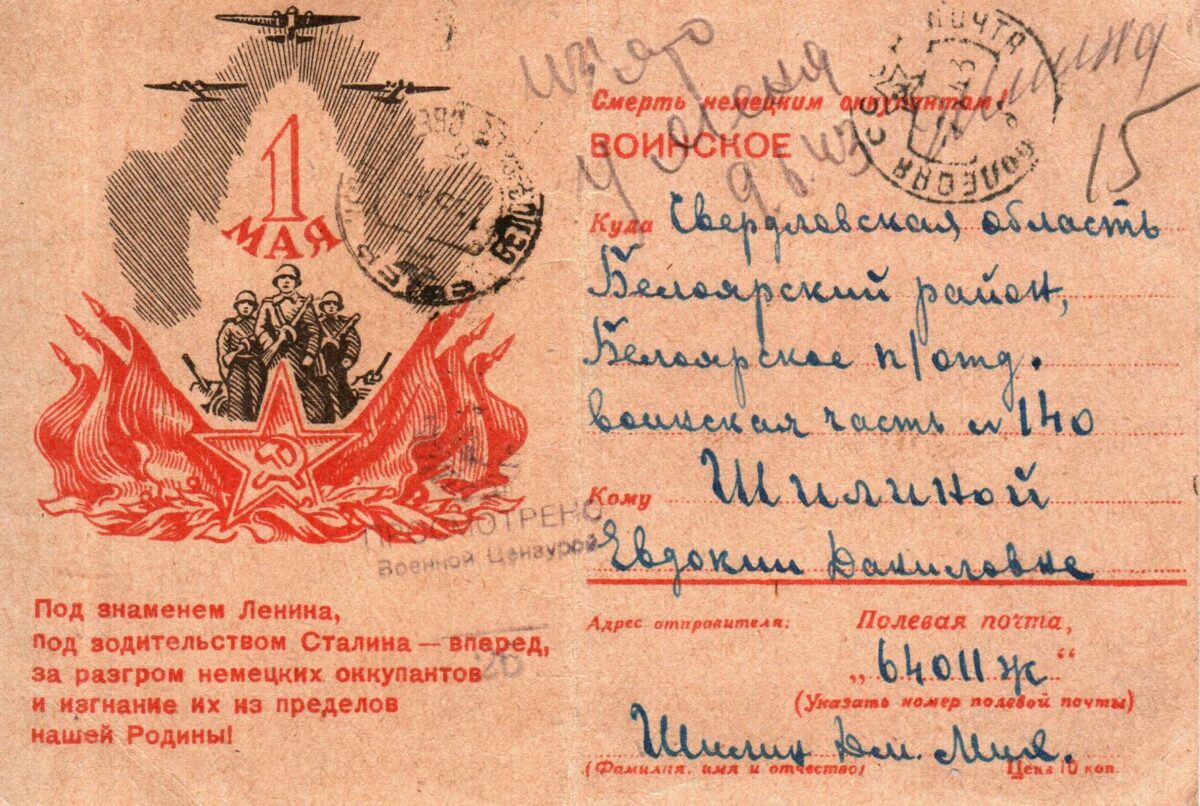 1
МАЯ
Под знаменем Ленина,
под водительством Сталина — вперед,
за разгром немецких оккупантов
и изгнание их из пределов
нашей Родины!
ПРОСМОТРЕНО
Военной Цензурой
26
15
Смерть немецким оккупантам!
ВОИНСКОЕ
ПОЧТА
ПОЛЕВАЯ
Куда Свердловская область
Белоярский район,
Белоярское п/отд.
воинская часть № 140
Кому Шилиной
Евдокии Даниловне
Адрес отправителя: Полевая почта,
„64011ж“
(Указать номер полевой почты)
Шилин Дм. Мих.
(Фамилия, имя и отчество) Цена 10 коп.